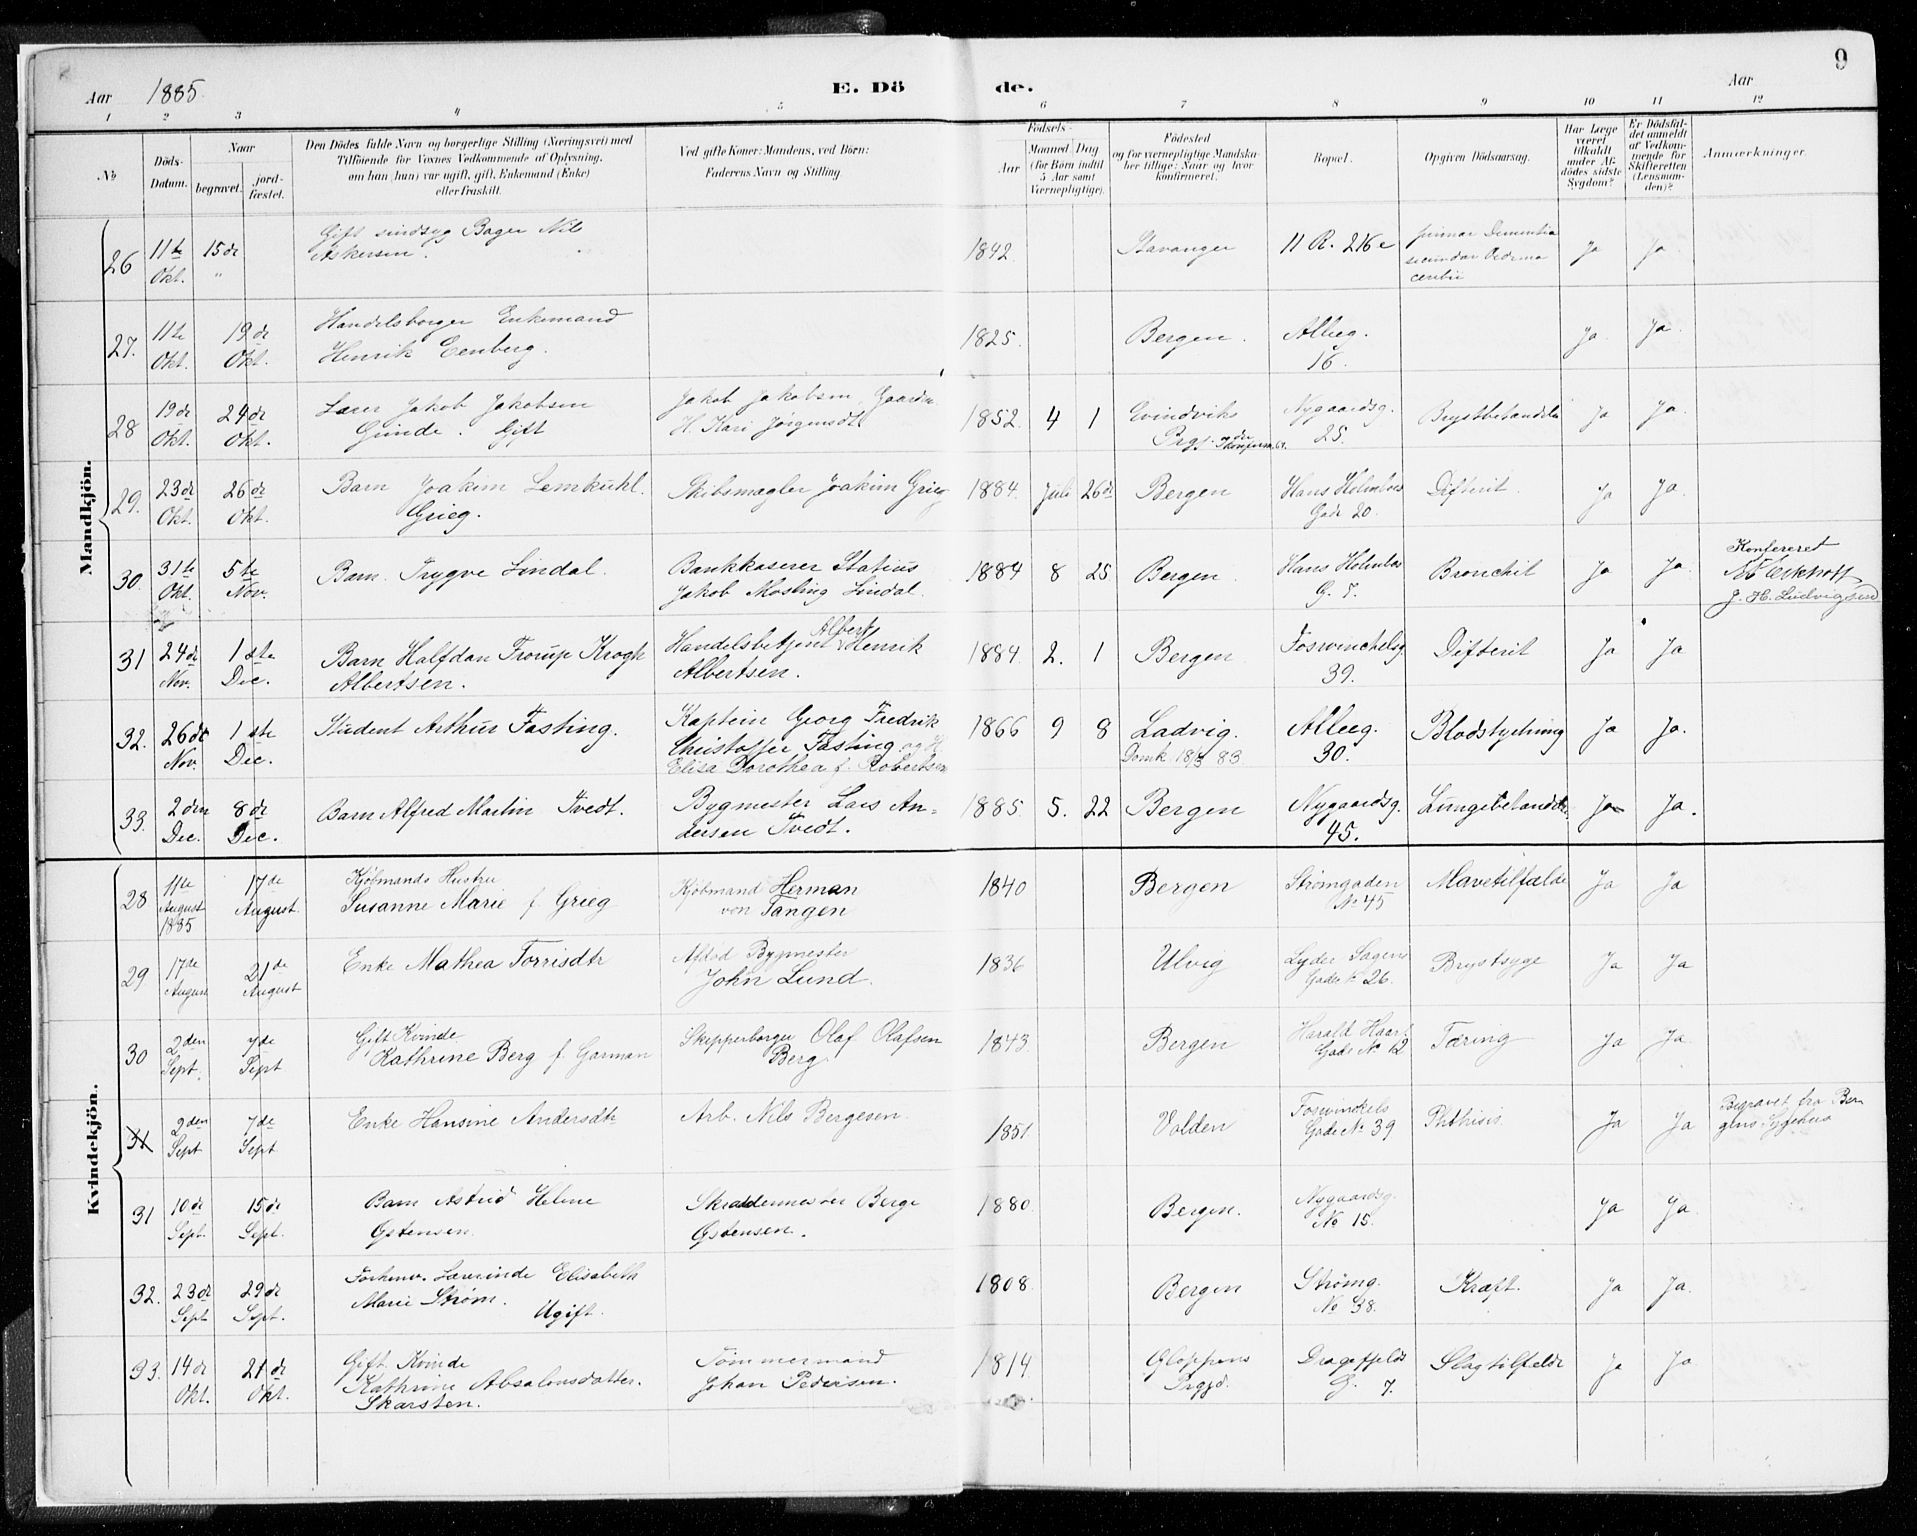 9
Aar 1885. E. Dö de. Aar
1 2 3 4 5 6 7 8 9 10 11 12
No. Döds-Datum. Naar begravet. jordfæstet. Den Dödes fulde Navn og borgerlige Stilling (Næringsvei) med Tilföiende for Voxnes Vedkommende af Oplysning, om han (hun) var ugift, gift, Enkemand (Enke) eller fraskilt. Ved gifte Koner: Mandens, ved Börn: Faderens Navn og Stilling. Födsels- Aar Maaned Dag (for Börn indtil 5 Aar samt Værnepligtige). Födested og for værnepligtige Mandskaber tillige: Naar og hvor konfirmeret. Bopæl. Opgiven Dödsaarsag. Har Læge været tilkaldt under Afdödes sidste Sygdom? Er Dödsfaldet anmeldt af Vedkommende for Skifteretten (Lensmanden)? Anmærkninger.
Mandkjön.
26 11te Okt. 15de " Gift sindsyg Bager Nils Askersen. 1842. Stavanger 11 R. 216 e primær Dementia secundær Oedema cerebri Ja Ja.
27. 11te Okt. 19de Okt. Handelsborger Enkemand Henrik Eenberg. 1825. Bergen. Alleeg. 16. Ja. Ja.
28 19de Okt. 24de Okt. Lærer Jakob Jakobsen Grinde. Gift Jakob Jakobsen, Gaardm. H. Kari Jørgensdt 1852. 4 1 Evindviks Prgj. Nygaardsg. 25. Ja Ja.
29. 23de Okt. 26de Okt. Barn Joakim Lemkuhl. Grieg. Skibsmægler Joakim Grieg 1884. Juli 26de Bergen Hans Holmboes Gade 20. Difterit. Ja Ja.
30. 31te Okt. 5te Nov. Barn. Trygve Lindal. Bankkaserer Statius Jakob Mosling Lindal. 1884 8 25 Bergen. Hans Holmboes G. 7. Bronchit Ja Ja. Konfereret J. H. Ludvigsen
31 24de Nov. 1ste Dec. Barn Halfdan Trorup Krogh Albertsen. Handelsbetjent Albert Henrik Albertsen. 1884. 2. 1 Bergen Foswinckelsg. 39. Difterit Ja Ja
32. 26de Nov. 1ste Dec. Student Arthur Fasting. Kaptein Georg Fredrik Christoffer Fasting og H. Elisa Dorothea f. Robertsen 1866 9 8 Ladvig. Domk. 18/3 83. Alleeg. 30. Blodstyrtning Ja Ja.
33. 2den Dec. 8de Dec. Barn Alfred Martin Tvedt. Bygmester Lars Andersen Tvedt. 1885. 5. 22 Bergen Nygaardsg. 45. Lungebetændelse. Ja Ja.
Kvindekjön.
28 11te August 1885 17de August. Kjøbmands Hustru Susanne Marie f. Grieg Kjøbmand Herman von Tangen 1840 Bergen Strømgaden No 45 Mavetilfælde Ja Ja
29 17de August 21de August Enke Mathea Torrisdtr Afdød Bygmester John Lund. 1836 Ulvig Lyder Sagens Gade № 26. Brystsyge Ja Ja
30 2den Sept. 7de Sept Gift Kvinde Kathrine Berg f. Garman Skipperborger Olaf Olafsen Berg 1843. Bergen Harald Haarf. Gade No 12 Tæring Ja Ja.
31 2den Sept 7de Sept Enke Hansine Andersdtr Arb. Nils Bergesen. 1851 Volden Foswinckels Gade No 39 Phthisis. Ja Ja Begravet fra Bergens Sygehus
31 10de Sept. 15de Sept. Barn Astrid Helene Østensen. Skræddermester Berge Østensen. 1880. Bergen. Nygaardsg. No 15. Ja Ja.
32. 23de Sept 29de Sept. Forhenv. Lærerinde Elisabeth Marie Strøm. Ugift. 1808. Bergen Strømg. No 38. Kræft. Ja Ja.
33. 14de Okt. 21de Okt. Gift Kvinde Kathrine Absalonsdatter. Skarsten. Tømmermand Johan Pedersen. 1814 Gloppens Prgjd. Dragefjelds G. 7. Slagtilfælde Ja Ja